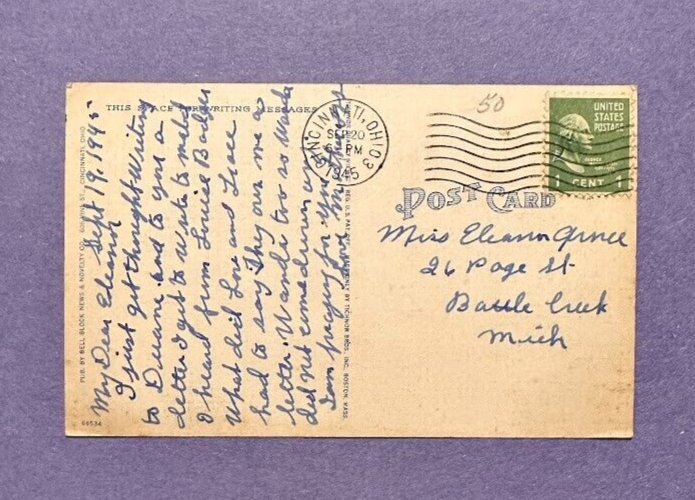 THIS SPACE FOR WRITING MESSAGES
Sept 19, 1945
My Dear Eleanor
I just get thought Writing
to Duane and to you a
letter I got to Write to mabel
I heard from Louise Badger
What did Lore and Grace
had to say They owe me a
letter. Wanda too so Wanda
did not come down
I am praying for you
PUB. BY BELL BLOCK NEWS & NOVELTY CO. CINCINNATI, OHIO
64534
TICHNOR BROS., INC. BOSTON, MASS.
CINCINNATI, OHIO 3
SEP 20
PM
1945
50
UNITED
STATES
POSTAGE
1 CENT 1
POST CARD
Miss Eleanor
26 Page St
Battle Creek
Mich